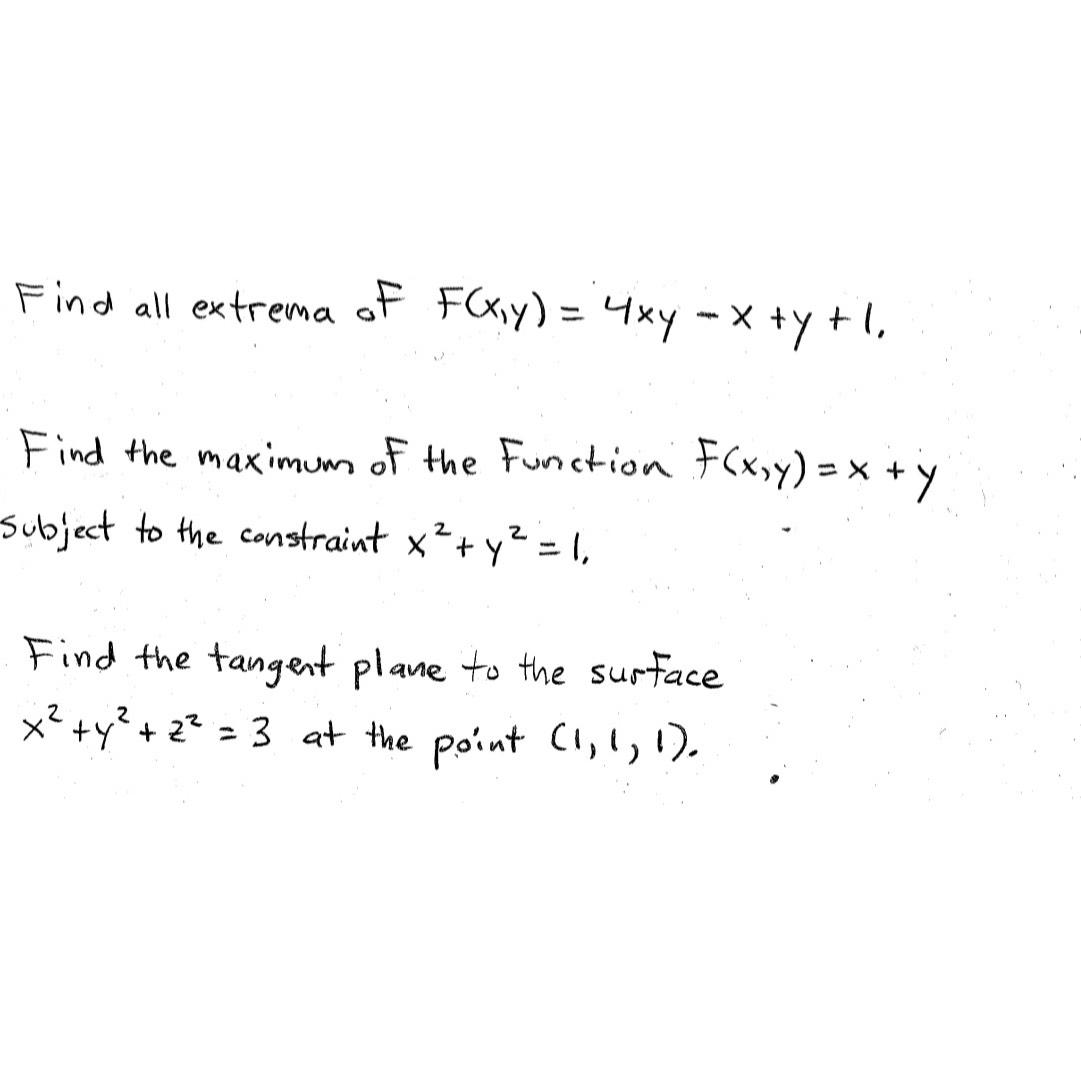 Find all extrema of F(x,y) = 4xy - x + y + 1.
Find the maximum of the function F(x,y) = x + y
subject to the constraint x² + y² = 1.
Find the tangent plane to the surface
x² + y² + z² = 3 at the point (1, 1, 1).